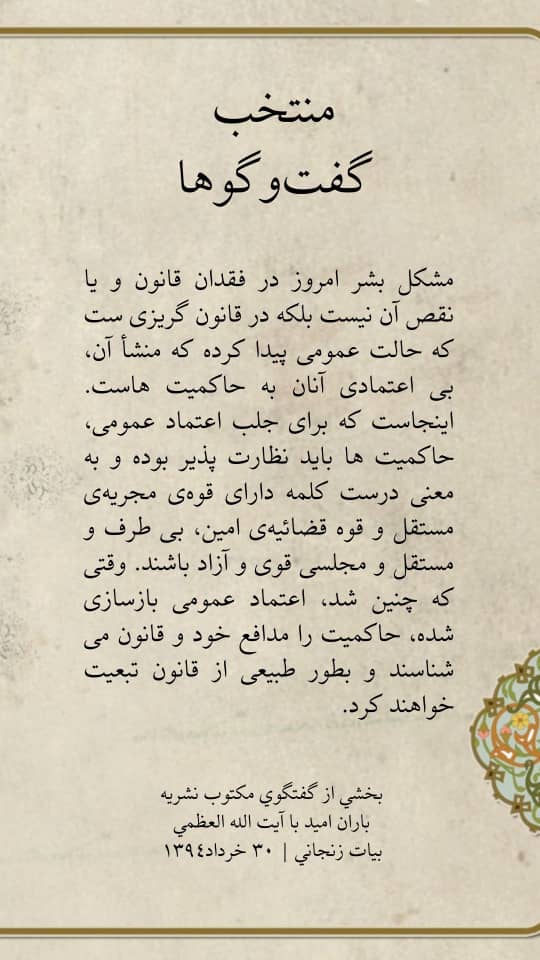 منتخب
گفت‌وگوها
مشکل بشر امروز در فقدان قانون و یا
نقص آن نیست بلکه در قانون گریزی ست
که حالت عمومی پیدا کرده که منشأ آن،
بی اعتمادی آنان به حاکمیت هاست.
اینجاست که برای جلب اعتماد عمومی،
حاکمیت ها باید نظارت پذیر بوده و به
معنی درست کلمه دارای قوه‌ی مجریه‌ی
مستقل و قوه قضائیه‌ی امین، بی طرف و
مستقل و مجلسی قوی و آزاد باشند. وقتی
که چنین شد، اعتماد عمومی بازسازی
شده، حاکمیت را مدافع خود و قانون می
شناسند و بطور طبیعی از قانون تبعیت
خواهند کرد.
بخشي از گفتگوي مکتوب نشریه
باران امید با آیت الله العظمي
بیات زنجاني | ۳۰ خرداد۱۳۹٤